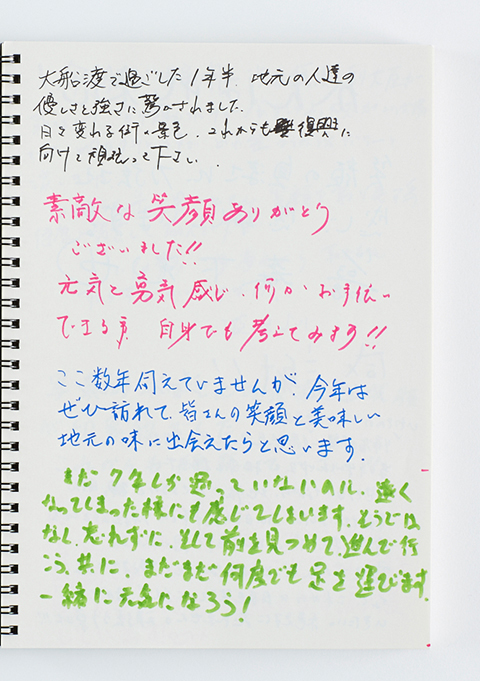 大船渡で過ごした1年半、地元の人達の
優しさと強さに驚かされました。
日々変わる街の景色、これからも復興に
向けて頑張って下さい。
素敵な笑顔ありがとう
ございました!!
元気と勇気感じ、何かお手伝い
できる事、自身でも考えてみます!!
ここ数年伺えていませんが、今年は
ぜひ訪れて、皆さんの笑顔と美味しい
地元の味に出会えたらと思います。
まだ7年しか経っていないのに、遠く
なってしまった様にも感じてしまいます。そうでは
なし、忘れずに、そして前を見つめて、進んで行
こう。共に、まだまだ何度でも足を運びます。
一緒に元気になろう!